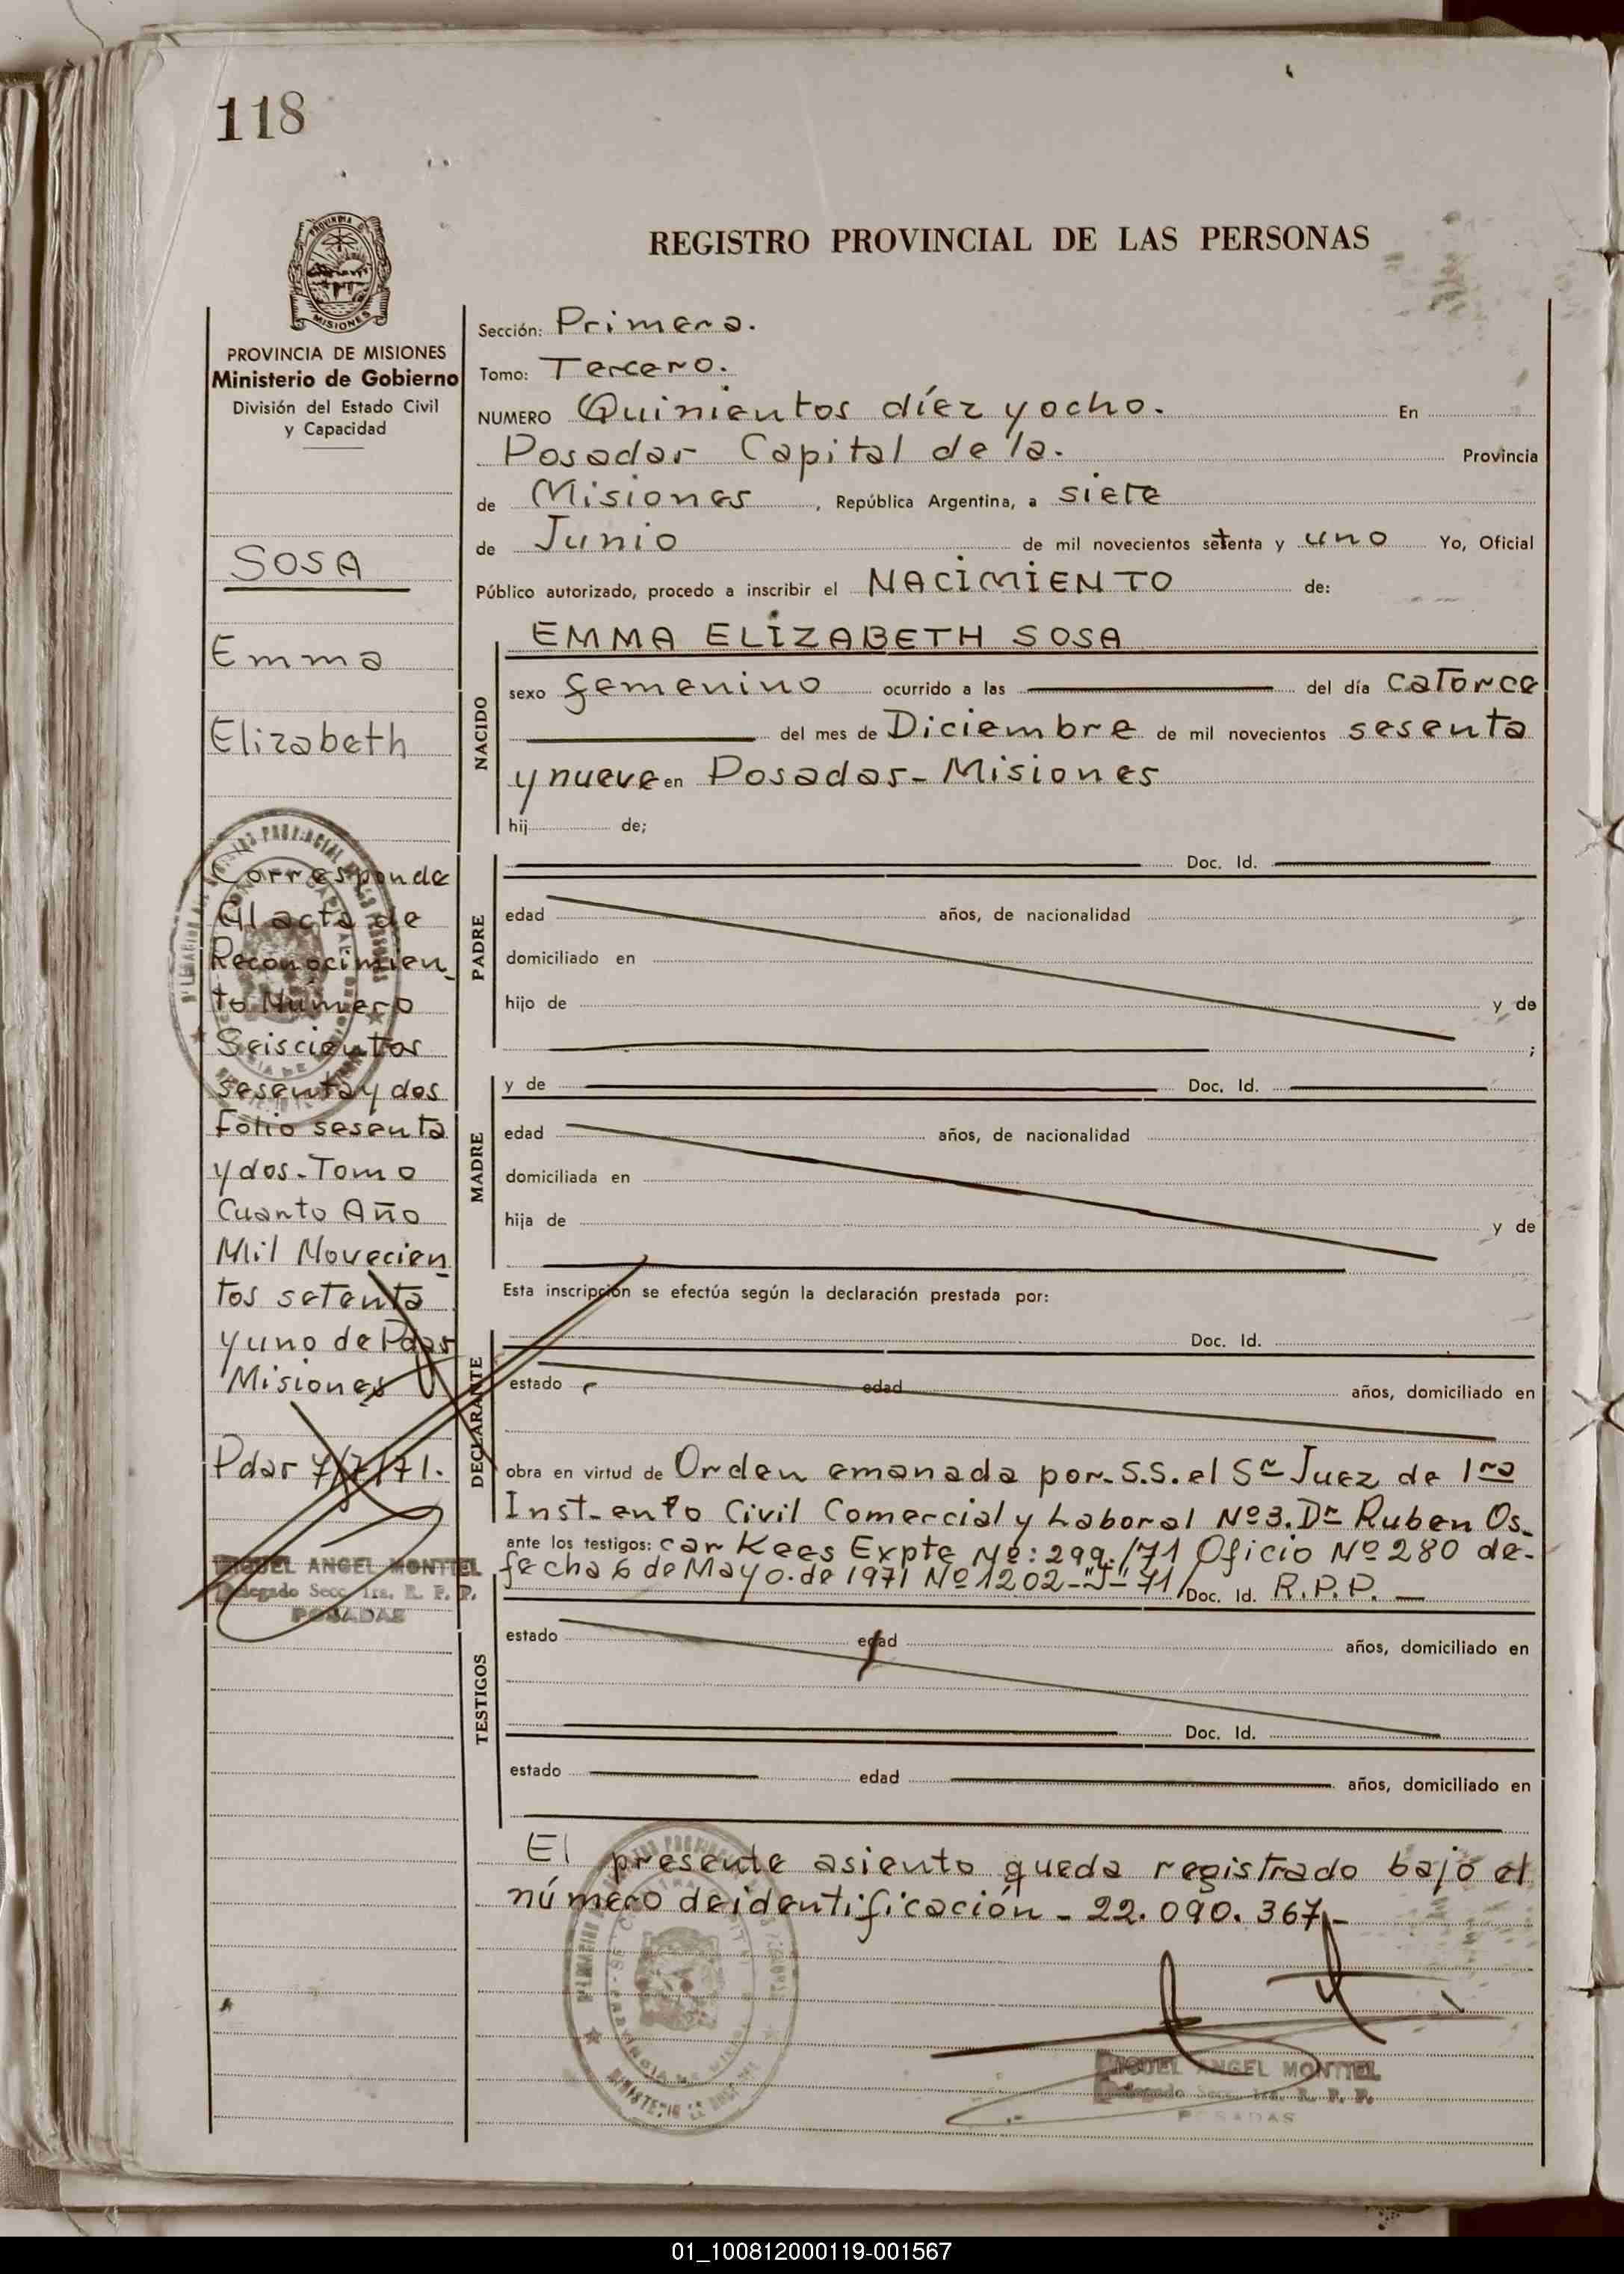 118
REGISTRO PROVINCIAL DE LAS PERSONAS
MISIONES
PROVINCIA DE MISIONES
Ministerio de Gobierno
División del Estado Civil
y Capacidad
SOSA
Emma
Elizabeth
Corresponde
Al acta de
Reconocimien
to Número
Seiscientos
sesenta y dos
Folio sesenta
y dos - Tomo
Cuarto Año
Mil Novecien
tos setenta
y uno de Pdas
Misiones
Pdas 7/7/71.
MIGUEL ANGEL MONTIEL
Delegado Secc. 1ra. R. P. P.
POSADAS
Sección: Primera.
Tomo: Tercero.
NUMERO Quinientos díez y ocho. En
Posadas Capital de la. Provincia
de Misiones, República Argentina, a siete
de Junio de mil novecientos setenta y uno Yo, Oficial
Público autorizado, procedo a inscribir el NACIMIENTO de:
NACIDO
EMMA ELIZABETH SOSA
sexo femenino ocurrido a las del día catorce
del mes de Diciembre de mil novecientos sesenta
y nueve en Posadas - Misiones
hij de;
PADRE
Doc. Id.
edad años, de nacionalidad
domiciliado en
hijo de y de
;
MADRE
y de Doc. Id.
edad años, de nacionalidad
domiciliada en
hija de y de
Esta inscripción se efectúa según la declaración prestada por:
DECLARANTE
Doc. Id.
estado edad años, domiciliado en
obra en virtud de Orden emanada por - S.S. el Sr Juez de 1ra
Inst- en lo Civil Comercial y Laboral Nº 3. Dr Ruben Os-
ante los testigos: car Kees Expte Nº: 299./71 Oficio Nº 280 de-
fecha 6 de Mayo. de 1971 Nº 1202-"J"-71/ Doc. Id. R.P.P.
TESTIGOS
estado edad años, domiciliado en
Doc. Id.
estado edad años, domiciliado en
El presente asiento queda registrado bajo el
número de identificación - 22.090.367 -
MIGUEL ANGEL MONTIEL
Delegado Secc. 1ra. R. P. P.
POSADAS
01_100812000119-001567